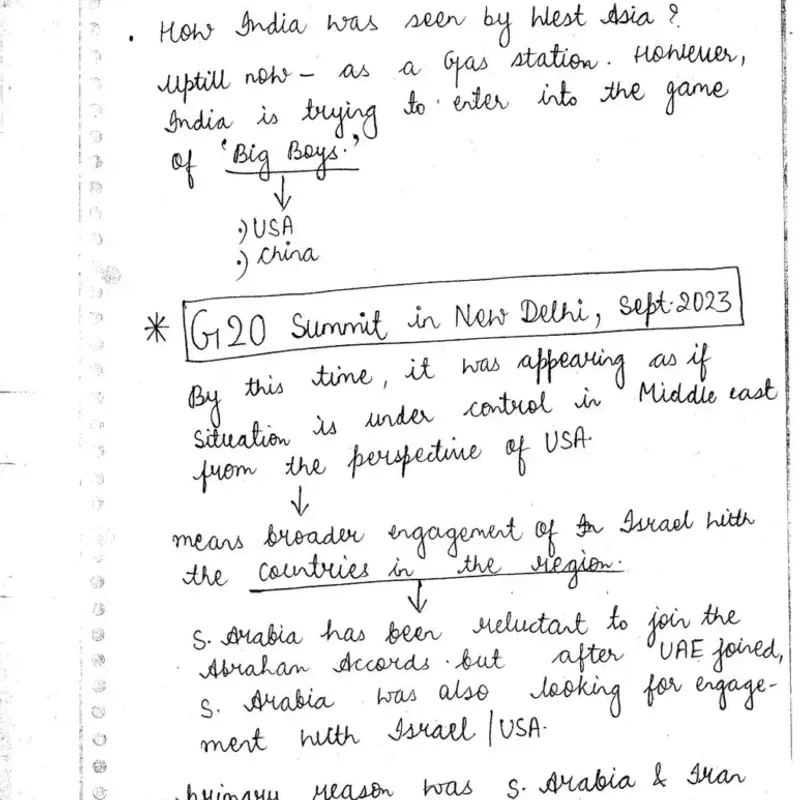 . How India was seen by West Asia?
Uptill now - as a Gas station. However,
India is trying to enter into the game
of 'Big Boys.'
↓
·) USA
·) China
* G20 Summit in New Delhi, Sept. 2023
By this time, it was appearing as if
Situation is under control in Middle east
from the perspective of USA.
↓
means broader engagement of Israel with
the countries in the region.
↓
S. Arabia has been reluctant to join the
Abrahan Accords but after UAE joined,
S. Arabia was also looking for engage-
ment with Israel | USA.
primary reason was S. Arabia & Iran